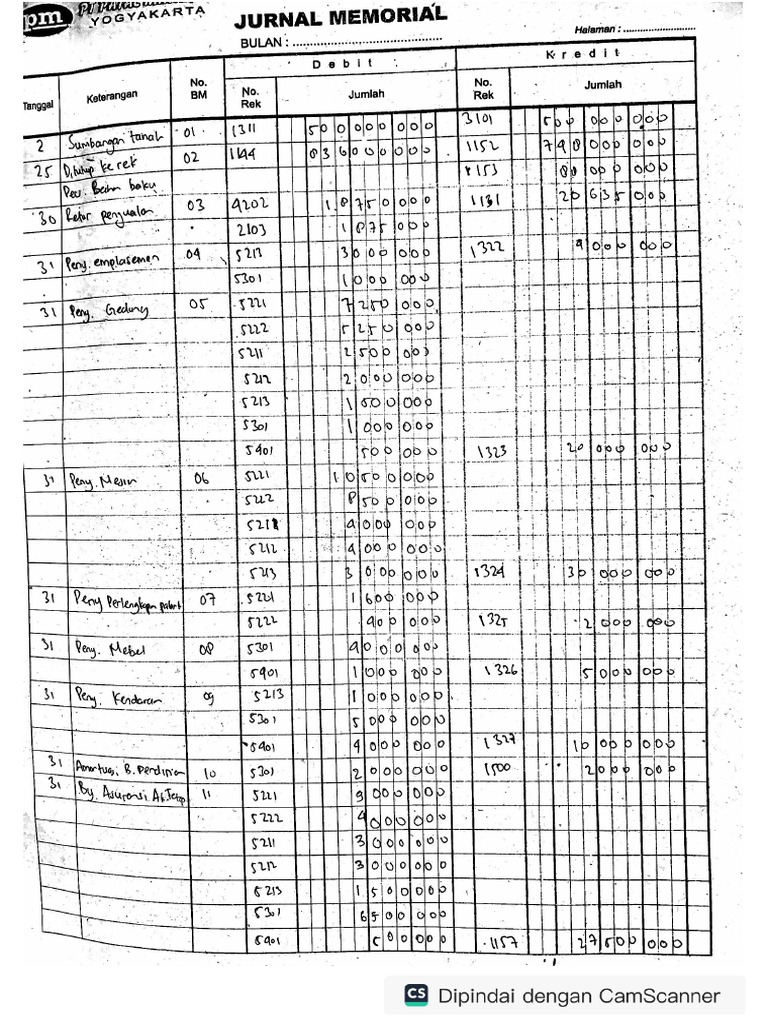 pm
YOGYAKARTA
JURNAL MEMORIAL
BULAN : Halaman :
Debit Kredit
Tanggal Keterangan No. BM No. Rek Jumlah No. Rek Jumlah
2 Sumbangan tanah 01 1311 500 000 000 3101 500 000 000
25 Ditutup ke rek 02 1144 836 000 000 1152 748 000 000
Per. Bahan baku 1153 80 000 000
30 Retur penjualan 03 4202 18 750 000 1131 20 635 000
2103 1 875 000
31 Peny. emplasemen 04 5213 3 000 000 1322 4 000 000
5301 1 000 000
31 Peny. Gedung 05 5221 7 250 000
5222 5 250 000
5211 2 500 000
5212 2 000 000
5213 1 500 000
5301 1 000 000
5401 500 000 1323 20 000 000
31 Peny. Mesin 06 5221 10 500 000
5222 8 500 000
5211 4 000 000
5212 4 000 000
5213 3 000 000 1324 30 000 000
31 Peny Perlengkapan pabrik 07 5221 1 600 000
5222 400 000 1325 2 000 000
31 Peny. Mebel 08 5301 4 000 000
5401 1 000 000 1326 5 000 000
31 Peny. Kendaraan 09 5213 1 000 000
5301 5 000 000
5401 4 000 000 1327 10 000 000
31 Amortisasi B. Pendirian 10 5301 2 000 000 1500 2 000 000
31 By. Asuransi Ak.Tetap 11 5221 9 000 000
5222 4 000 000
5211 3 000 000
5212 3 000 000
5213 1 500 000
5301 6 500 000
5401 500 000 1157 27 500 000
CS Dipindai dengan CamScanner